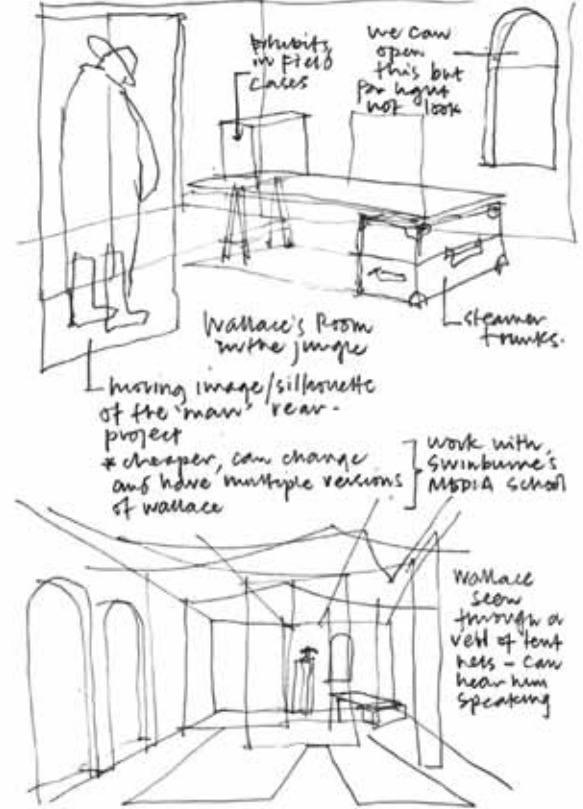 Exhibits
in Field
cases
we can
open
this but
for light
not look
steamer
trunks.
Wallace's Room
in the jungle
moving image/silhouette
of the 'man' rear-
project
* cheaper, can change
and have multiple versions
of wallace
work with
Swinburne's
MEDIA School
Wallace
seen
through a
veil of tent
nets – can
hear him
speaking